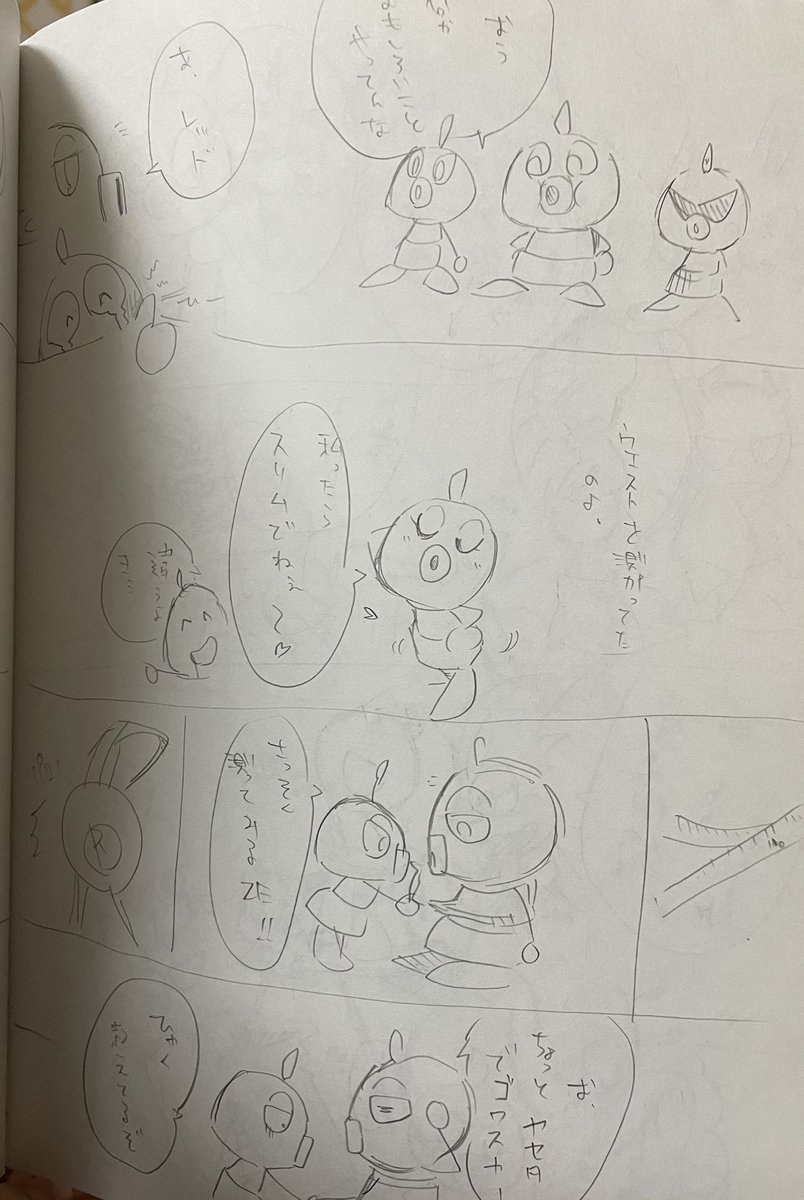 なう
何か
おもしろいこと
やってんな
あ、
レッド
ウエストを測がってた
のよ、
私ったら
スリムでねぇ〜♡
さっそく
測ってみるZE!!
100
お、
ちょっとヤセタ
でゴワスナー
ひゃく
超えてるぞ